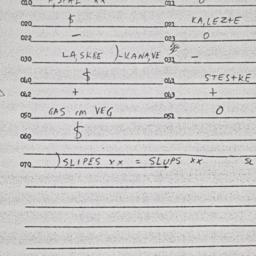 020 $ 021 KA,LEZ+E
022 - 023 0
030 LA,SKEE )-KANA,VE 031 -
040 $ 041 STES+KE
042 + 043 +
050 GAS IM VEG 051 0
060 $
070 )SLIPES XX = SLUPS XX